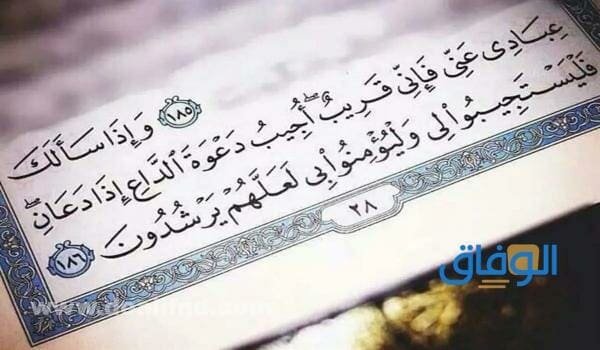 ١٨٥ وَإِذَا سَأَلَكَ
عِبَادِى عَنِّى فَإِنِّى قَرِيبٌ ۖ أُجِيبُ دَعْوَةَ ٱلدَّاعِ إِذَا دَعَانِ ۖ
فَلْيَسْتَجِيبُوا۟ لِى وَلْيُؤْمِنُوا۟ بِى لَعَلَّهُمْ يَرْشُدُونَ ١٨٦
٢٨
الوفاق